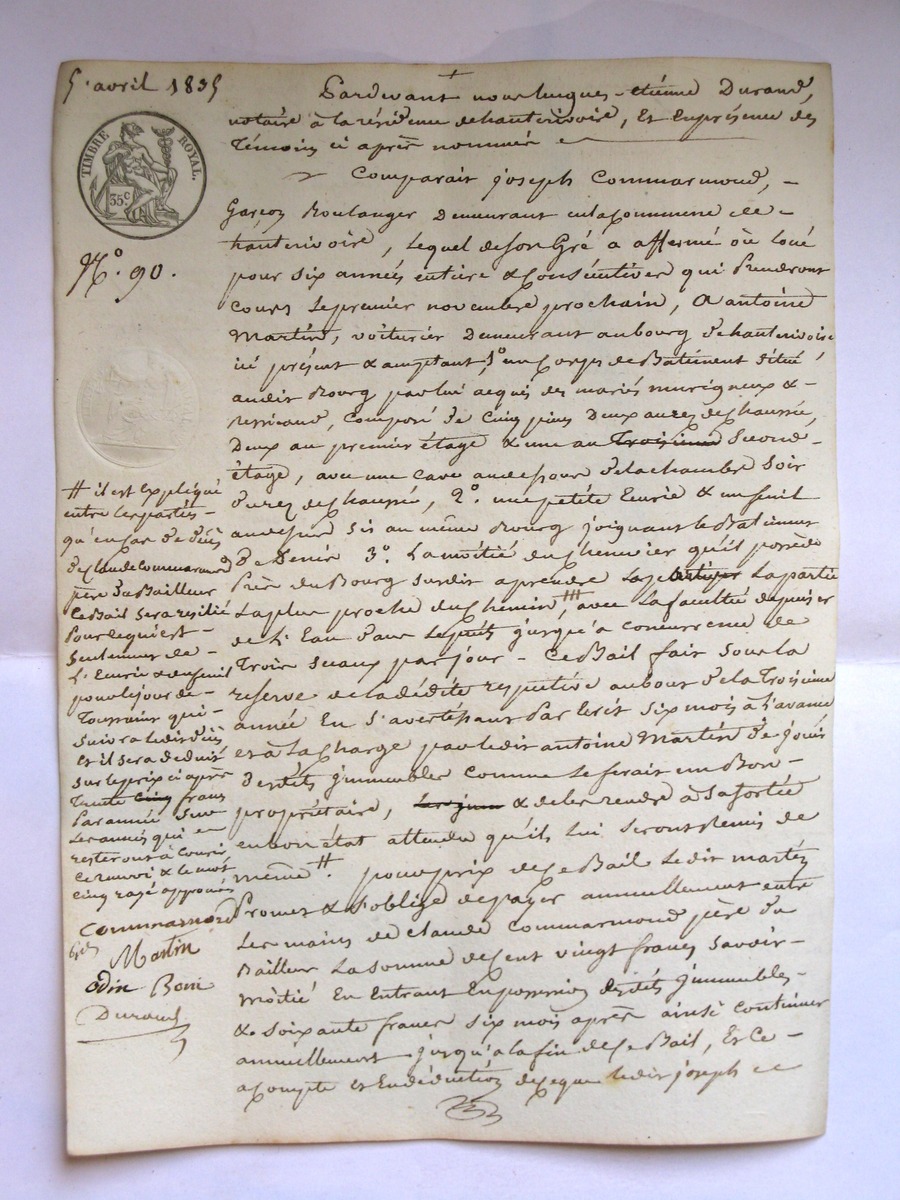 5. avril 1835
TIMBRE ROYAL.
35c
No. 90.
Pardevant nous hugues-etiénne Durand,
notaire à la résidence de hauterivoire, Et En présence des
Témoins ci après nommés
Comparait joseph Commarmond,
Garçon Boulanger Demeurant en la Commune de
hauterivoire, Lequel de son Gré a affermé où Loué
pour six années entière & Consécutives qui Prendront
Cours Le premier novembre prochain, A antoine
Martin, voiturier Demeurant au bourg de hauterivoire
ici présent & acceptant, 1o un Corps de Batiment situé
audit Bourg par lui acquis des mariés murigneux &
ressicaud, Composé de Cinq pièces Deux au rez de Chaussée,
Deux au premier étage & une au Troisieme Second
étage, avec une Cave au dessous de la chambre Soir
du rez de Chaussée, 2o. une petite Ecurie & un fenil
au dessus sis au même Bourg joignant le Batiment
de Denis 3o. La moitié du Chenevier qu'il possède
Près du Bourg susdit a prendre La partie
La plus proche du Chemin, avec La faculté de puiser
de L'Eau dans Le puits jusqu'a concurrence de
Trois seaux par jour - Ce Bail fait sous la
réserve de la dédite respective au bout de la Troisieme
année En s'avertissant Par Ecrit Six mois à L'avance
et à La Charge par ledit antoine Martin de jouir
desdits jmmeubles Comme Le ferait un Bon
propriétaire, & de les rendre à sa sortie
en bon état attendu qu'ils lui seront Remis de
même #. pour prix de Ce Bail Ledit martin
Promet & s'oblige de payer annuellement entre
Les mains de Claude Commarmond père du
Bailleur La somme de Cent vingt francs savoir
môitié En Entrant En possession desdits jmmeubles
& soixante francs six mois après ainsi continuer
annuellement jusqu'à la fin de Ce Bail, Et Ce
a Compte et En déduction de Ce que ledit joseph
# il est Expliqué
entre les parties
qu'en Cas de décès
de Claude Commarmond
père du Bailleur
Ce Bail sera résilié
Pour Ce qui est
Seulement de
L'Ecurie & du fenil
pour le jour de
Toussaint qui
suivra ledit décès
Et il sera déduit
sur le prix ci après
Trente Cinq francs
Par année Sur
Les années qui
resteront à Courir
Ce renvoi & le mot
Cinq rayé approuvés
Commarmond
Martin
Odin Boni
Durand